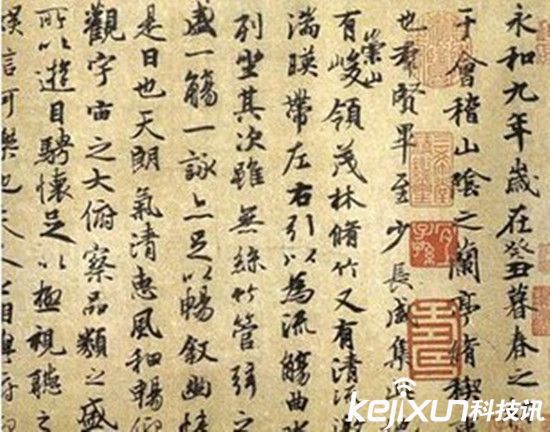 永和九年歲在癸丑暮春之
于會稽山陰之蘭亭脩禊
也羣賢畢至少長咸集此
崇山
有峻領茂林脩竹又有清流激
湍暎帶左右引以為流觴曲水
列坐其次雖無絲竹管弦
盛一觴一詠亦足以暢敘幽情
是日也天朗氣清惠風和暢仰
觀宇宙之大俯察品類之盛
所以遊目騁懷足以極視聽之
娛信可樂也夫人之相與俯
kejixun科技讯